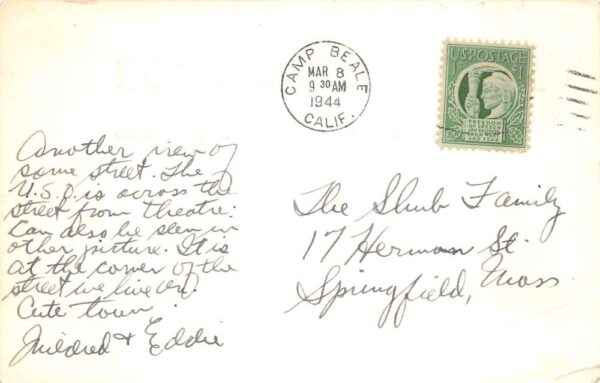 CAMP BEALE
MAR 8
9 30 AM
1944
CALIF.
U.S. POSTAGE
1¢ 1¢
FREEDOM
OF SPEECH
AND RELIGION
FROM WANT
AND FEAR
Another view of
same street. The
U.S.O. is across the
street from theatre.
Can also be seen in
other picture. It is
at the corner of the
street we live on.
Cute town.
Mildred & Eddie
The Shub Family
17 Herman St.
Springfield, Mass